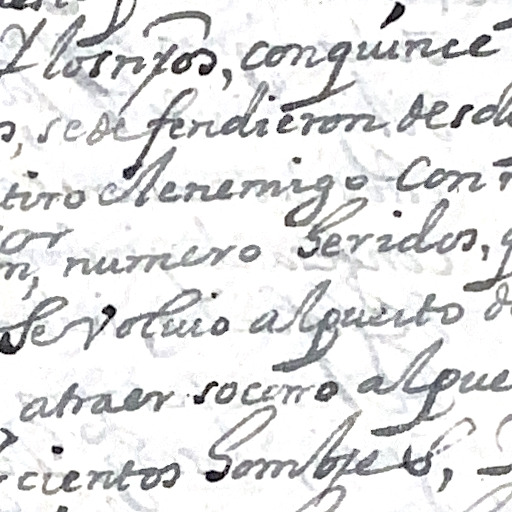 Y los nr̃os, con quince
se defendieron desde
tiro el enemigo con
or
n, numero heridos, q
se volvio al puerto d
atraer socorro al pue
cientos hombres,